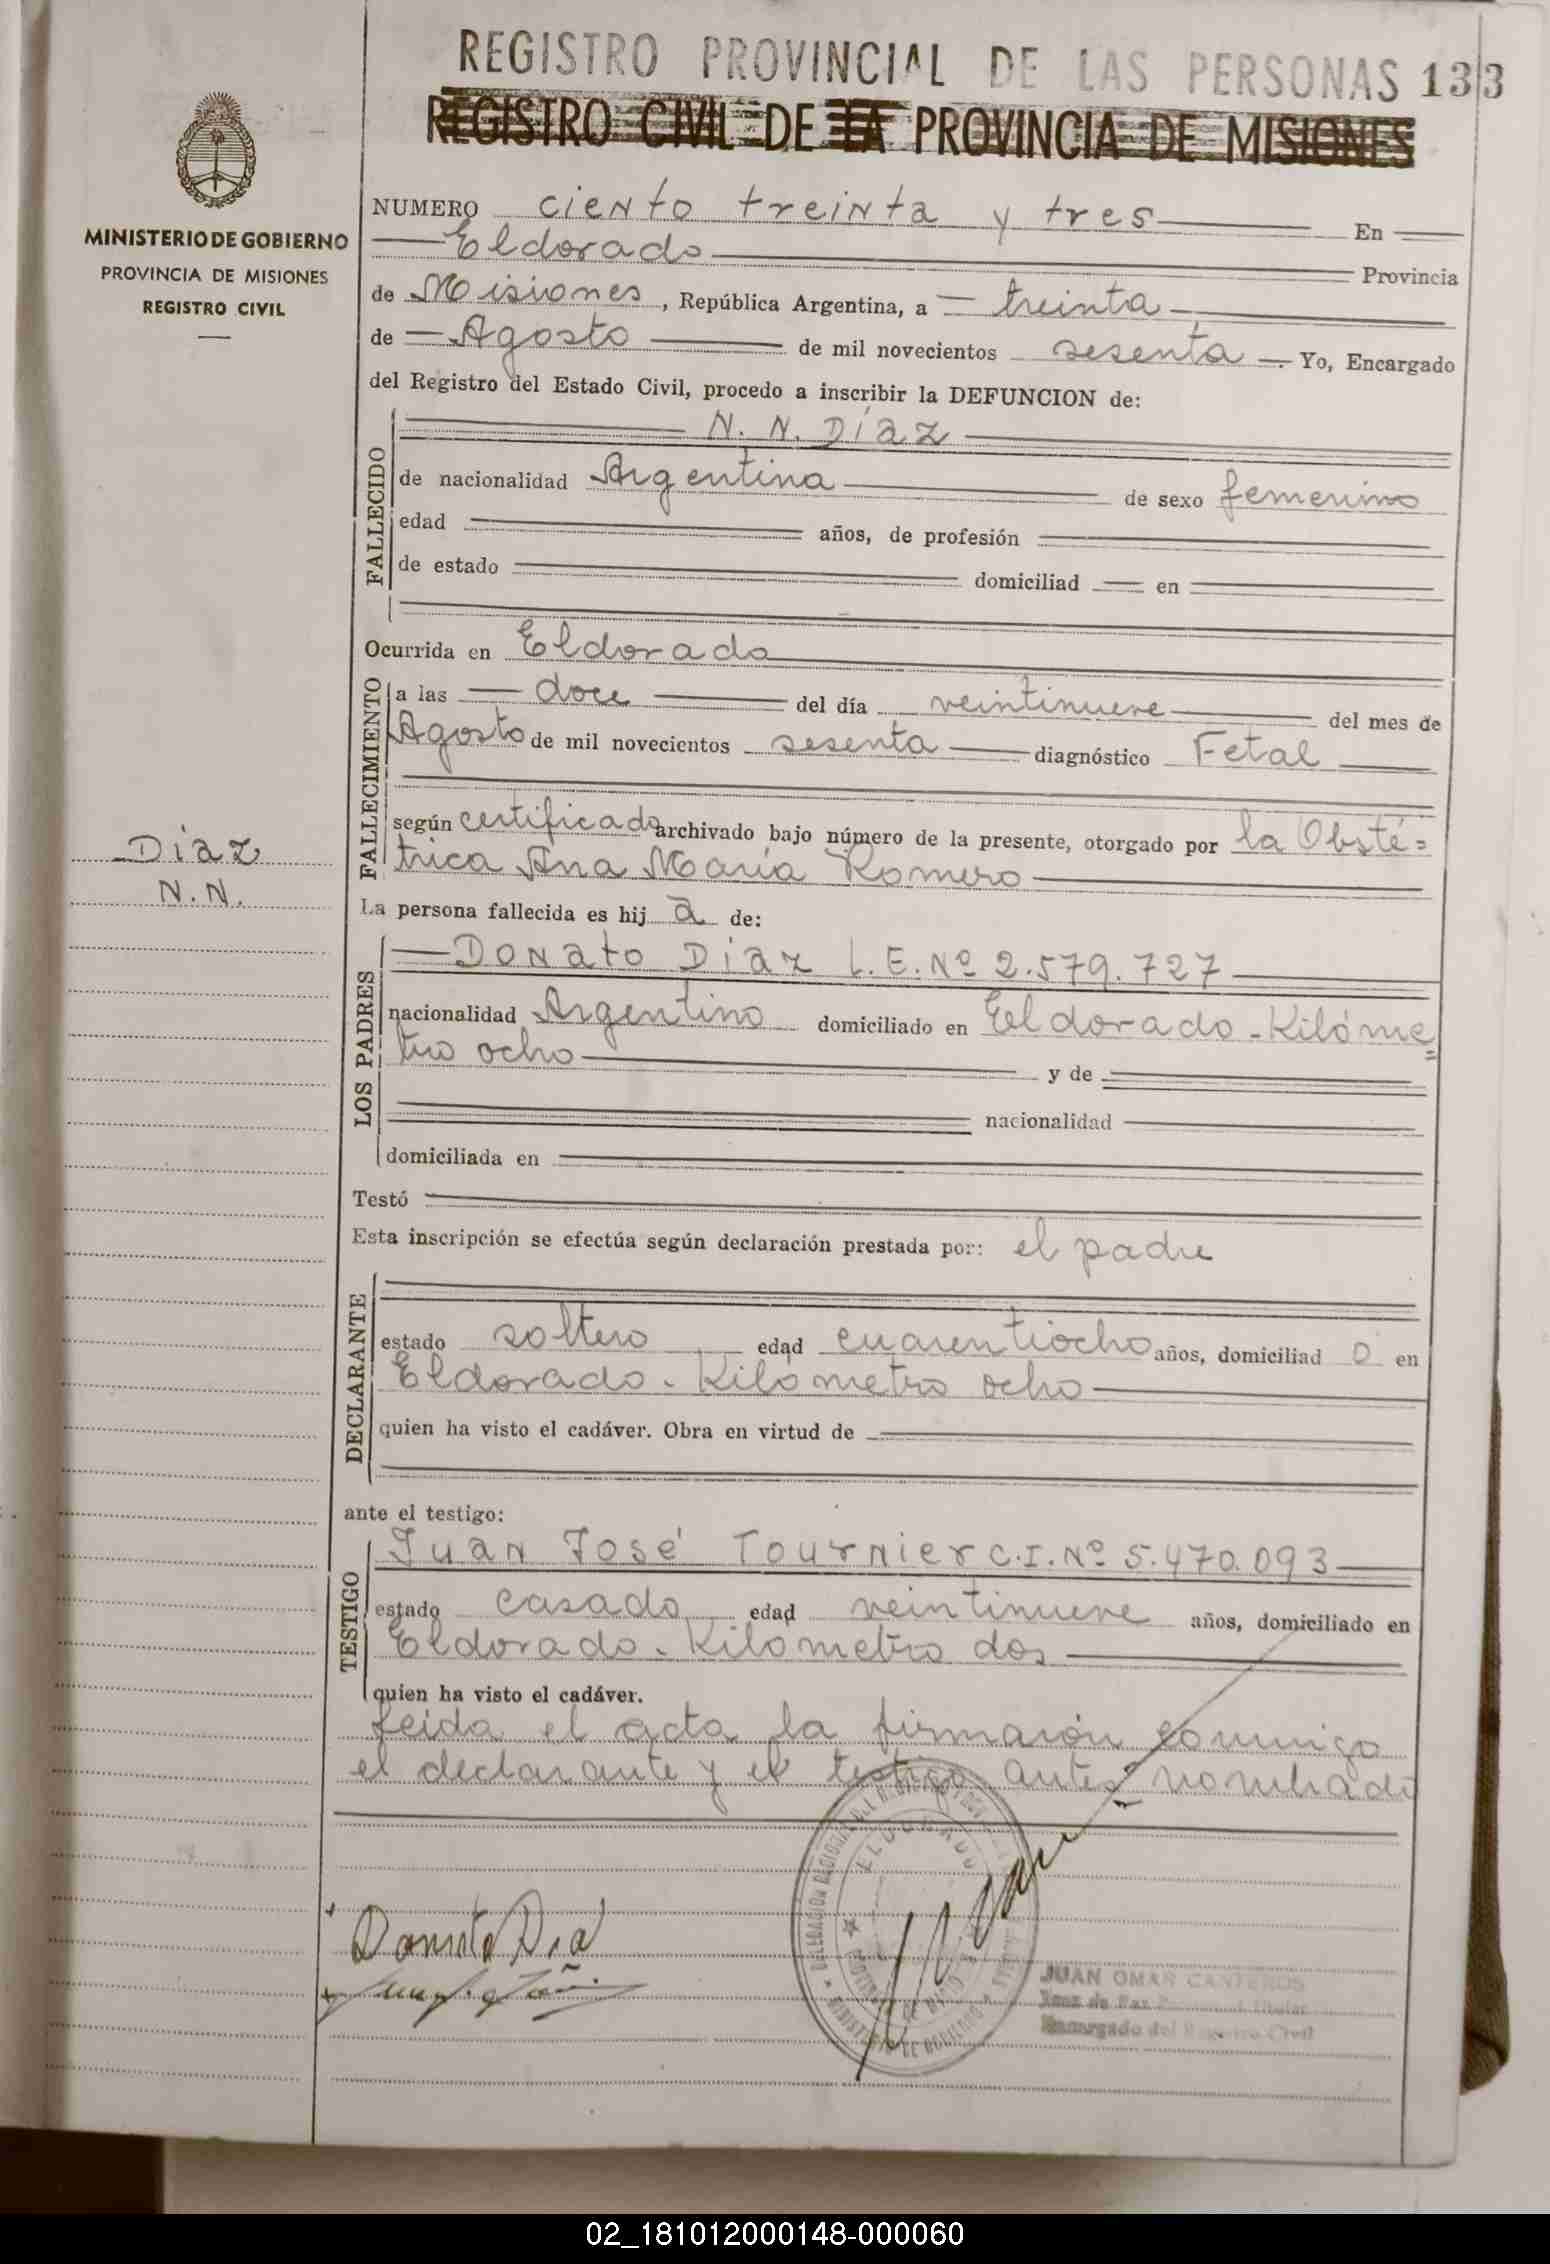 REGISTRO PROVINCIAL DE LAS PERSONAS 133
REGISTRO CIVIL DE LA PROVINCIA DE MISIONES
MINISTERIO DE GOBIERNO
PROVINCIA DE MISIONES
REGISTRO CIVIL
NUMERO ciento treinta y tres En
Eldorado Provincia
de Misiones, República Argentina, a treinta
de Agosto de mil novecientos sesenta. Yo, Encargado
del Registro del Estado Civil, procedo a inscribir la DEFUNCION de:
FALLECIDO
N. N. Díaz
de nacionalidad Argentina de sexo femenino
edad años, de profesión
de estado domiciliad en
Ocurrida en Eldorado
FALLECIMIENTO
a las doce del día veintinueve del mes de
Agosto de mil novecientos sesenta diagnóstico Fetal
según certificado archivado bajo número de la presente, otorgado por la Obsté=
trica Ana María Romero
Díaz
N.N.
La persona fallecida es hij a de:
LOS PADRES
Donato Díaz L.E. Nº 2.579.727
nacionalidad Argentino domiciliado en Eldorado - Kilóme=
tro ocho y de
nacionalidad
domiciliada en
Testó
Esta inscripción se efectúa según declaración prestada por: el padre
DECLARANTE
estado soltero edad cuarentiocho años, domiciliad o en
Eldorado - Kilómetro ocho
quien ha visto el cadáver. Obra en virtud de
ante el testigo:
TESTIGO
Juan José Tournier C.I. Nº 5.470.093
estado casado edad veintinueve años, domiciliado en
Eldorado - Kilómetro dos
quien ha visto el cadáver.
Leida el acta la firmarón conmigo
el declarante y el testigo antes nombrado
ELDORADO
Donato Diaz
JUAN OMAR CANTEROS
Juez de Paz Titular
Encargado del Registro Civil
02_181012000148-000060